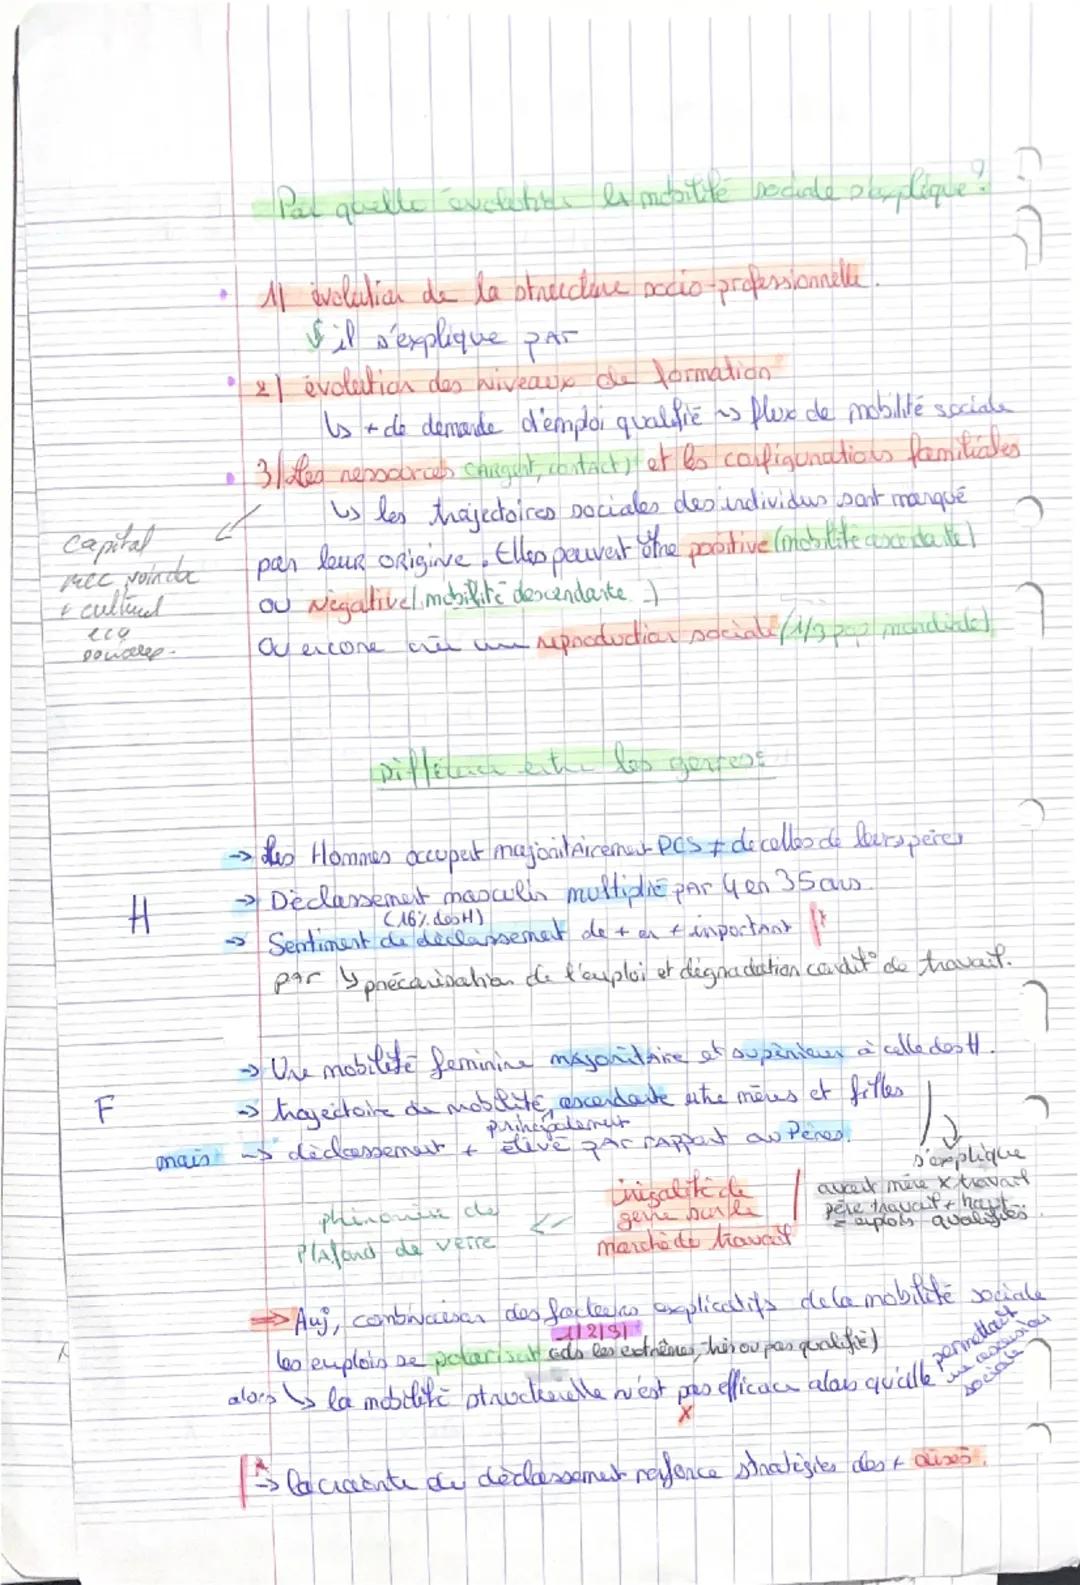 Par quelle évolution la mobilité sociale s'explique?
1) évolution de la structure socio-professionnelle.
↳ il s'explique par
2) évolution des niveaux de formation
↳ + de demande d'emploi qualifié ~> flux de mobilité sociale
3) Les ressources (argent, contact) et les configurations familiales
↳ les trajectoires sociales des individus sont marqué
par leur origine. Elles peuvent être positive (mobilité ascendante)
ou Négative (mobilité descendante)
Ou encore crée une reproduction sociale (1/3 pop mondiale)
capital
+ culturel
eco
sociales.
Différence entre les genres:
H
-> Les Hommes occupent majoritairement PCS ≠ de celles de leurs pères
-> Déclassement masculin multiplié par 4 en 35 ans
(16% des H)
-> Sentiment de déclassement de + en + important *
par ↳ précarisation de l'emploi et dégradation condit° de travail.
F
-> Une mobilité feminine majoritaire et supérieur à celle des H.
-> trajectoire de mobilité, ascendante entre mères et filles
principalement
mais -> déclassement + élevé par rapport au Pères.
s'explique
avant mère x travail
père travail + haut
= emplois qualifiés.
inégalité de
genre sur le
marché de travail
phénomène de
Plafond de verre
=> Auj, combinaison des facteurs explicatifs de la mobilité sociale
1/2/3/
les emplois se polarisent (ds les extrêmes, très ou pas qualifié)
alors ↳ la mobilité structurelle n'est pas efficace alors qu'elle permettait une ascension sociale
x
* -> la crainte du déclassement renforce stratégies des + aisés.